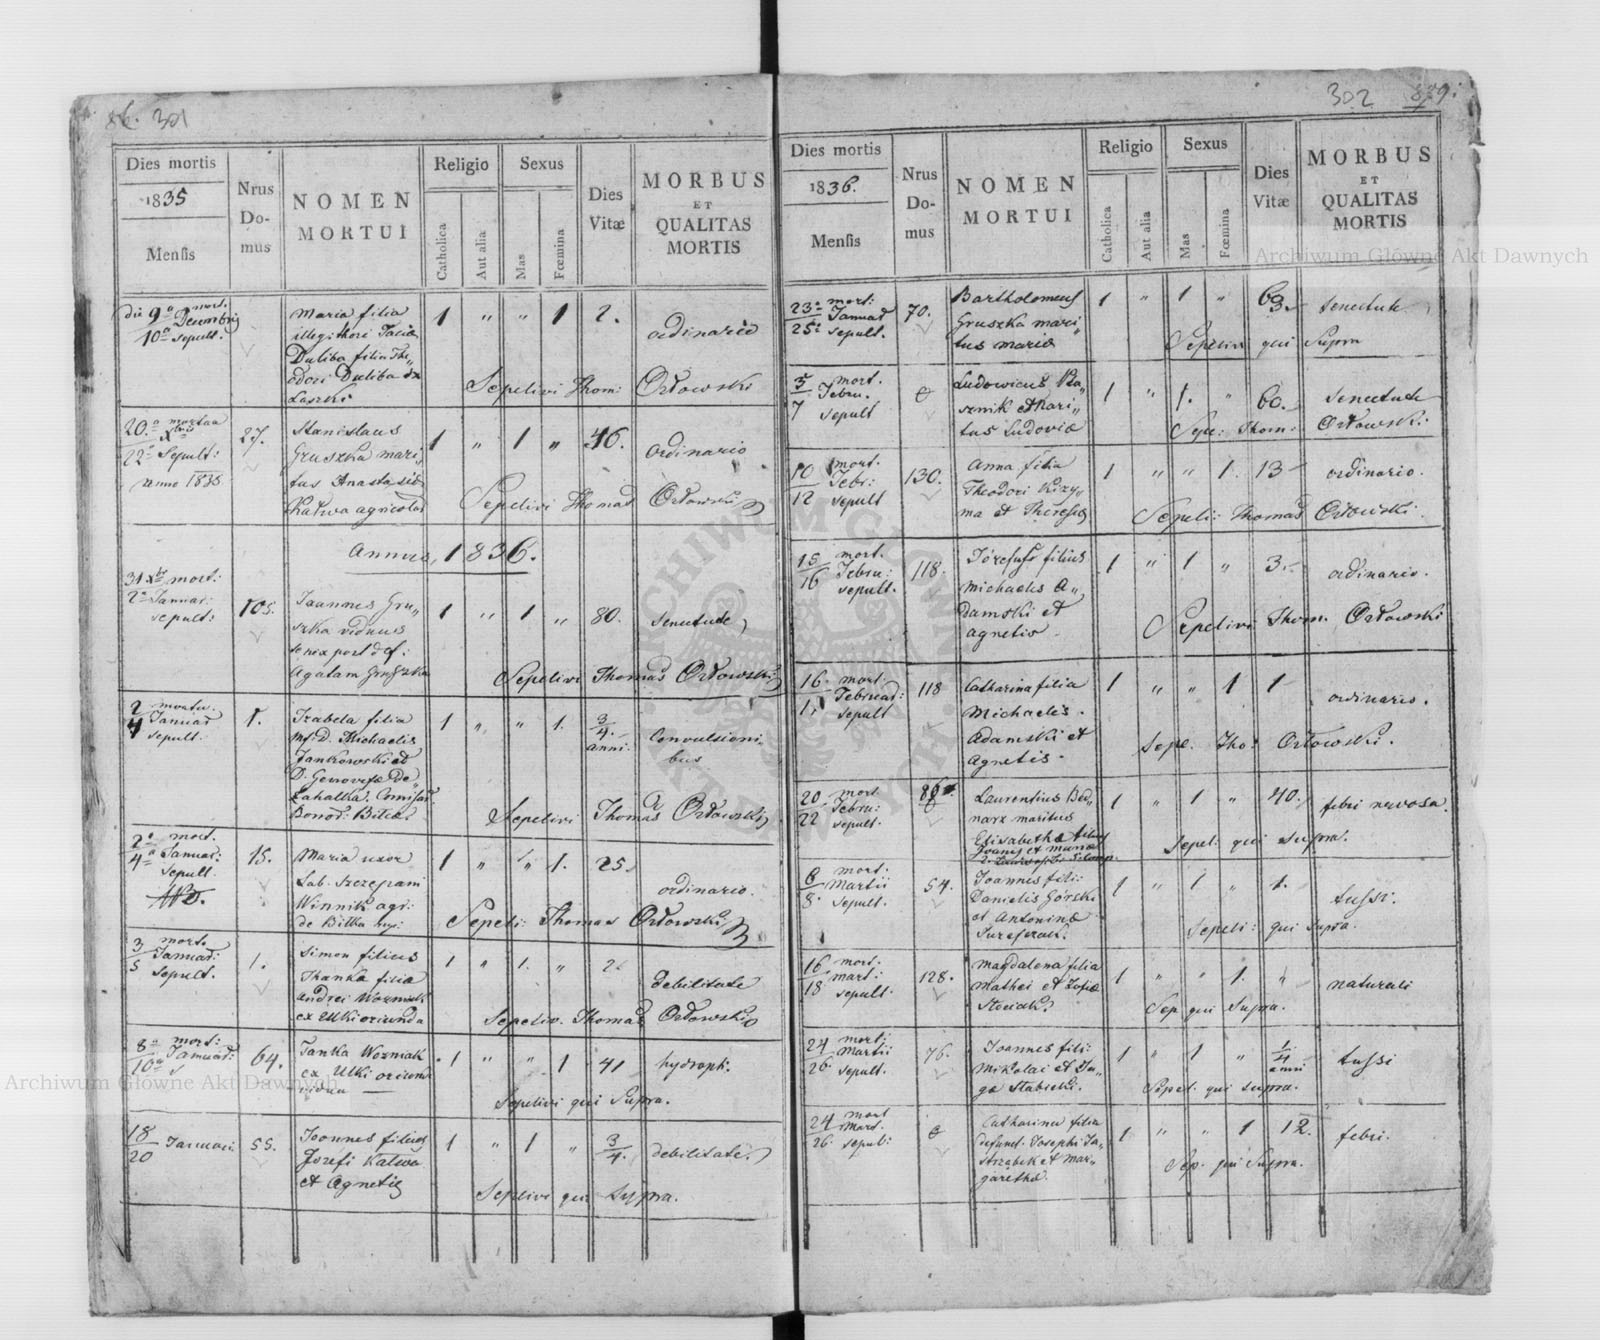 301
Dies mortis
1835
Mensis
Nrus
Do-
mus
NOMEN
MORTUI
Religio
Catholica
Aut alia
Sexus
Mas
Fœmina
Dies
Vitæ
MORBUS
ET
QUALITAS
MORTIS
9a mort.
Decembris
10a sepult.
Maria filia
Duliba filia The„
odori Duliba ex
Laszki
1 „ „ 1 2.
ordinario
Sepelivi Thom: Orłowski
20.a
22a Sepult:
anno 1835
27.
Stanislaus
Gruszka mari„
tus Anastasiæ
Kałwa agricola
1 „ 1 „ 46.
ordinario
Sepelivi Thomas Orłowski
Annus 1836.
31 Xbr mort:
2a Januar:
sepult:
105.
Joannes Gru„
szka viduus
senex post def:
Agatam Gruszka
1 „ 1 „ 80.
Senectude
Sepelivi Thomas Orłowski
2
4 Januar
sepult.
1.
Izabela filia
M.D. Michaelis
Jankowski et
D. Genovefæ de
Zahalka. Comisar.
Bonor. Bilka
1 „ „ 1. 3/4.
anni.
Convulsioni„
bus
Sepelivi Thomas Orłowski
2a mort.
4a Januar:
Sepult
15.
Maria uxor
Lab. Szczepani
Winnik agr:
de Bilka
1 „ „ 1. 25
ordinario.
Sepeli: Thomas Orłowski
3 mort.
5 Januar:
sepult.
1.
Simon filius
Thanka filia
Andrei Wozniak
ex Utki oriunda
1 „ 1. „ 2.
debilitate
Sepeliv. Thomas Orłowski
8a mort:
10a Januar:
64.
Tanka Wozniak
ex Utki oriund
vidua
1 „ „ 1 41
hydroph:
Sepelivi qui Supra.
18
20 Januari
55.
Joannes filius
Josefi Kałwa
et Agnetis
1 „ 1 „ 3/4.
debilitate.
Sepelivi qui Supra.
302
Dies mortis
1836.
Mensis
Nrus
Do-
mus
NOMEN
MORTUI
Religio
Catholica
Aut alia
Sexus
Mas
Fœmina
Dies
Vitæ
MORBUS
ET
QUALITAS
MORTIS
23a mort:
Januar
25a sepult.
70.
Bartholomeus
Gruszka mari„
tus Mariæ
1 „ 1 „ 63.
Senectute
Sepelivi qui Supra
5 mort.
Febru.
7 sepult
Ludovicus
sznik et mari„
tus Ludoviæ
1 „ 1. „ 60.
Senectute
Sepe: Thom: Orłowski:
10 mort.
Febr:
12 sepult
130.
Anna filia
Theodori Kizy„
ma et Theresiæ
1 „ „ 1. 13
ordinario.
Sepeli: Thomas Orłowski.
15 mort.
16 Febru:
sepult.
118.
Józefus filius
Michaelis A„
damski et
Agnetis.
1 „ 1 „ 3.
ordinario.
Sepelivi Thom. Orłowski
16. mort.
Februar:
sepult
118
Catharina filia
Michaelis.
Adamski et
Agnetis.
1 „ „ 1 1
ordinario.
Sepe. Tho: Orłowski.
20 mort
22 Febru:
sepult.
Laurentius Bed„
narz maritus
Elisabethæ filius
Joanis et Mariæ
1 „ 1 „ 40.
febri nervosa.
Sepel: qui supra.
6 mort:
Martii
8. Sepult.
54.
Joannes fili:
Danielis Górski
et Antoninæ
1 „ 1 „ 1.
tussi.
Sepeli: qui Supra.
16 mort.
mart:
18 sepult.
128.
Magdalena filia
Mathei et Zofiæ
1 „ „ 1. „
naturali
Sep qui Supra.
24 mort.
Martii
26. sepult.
76.
Joannes fili:
Mikolai et Ju„
gæ Stabicki.
1 „ 1 „ 1/4
anni
tussi
Sepel. qui supra.
24 mort
Mart.
26. sepul:
Catharina filia
defunct. Josephi Ja„
strzabek et Mar„
garethæ.
1 „ „ 1 12.
febri.
Sep. qui Supra.
Archiwum Główne Akt Dawnych
Archiwum Główne Akt Dawnych